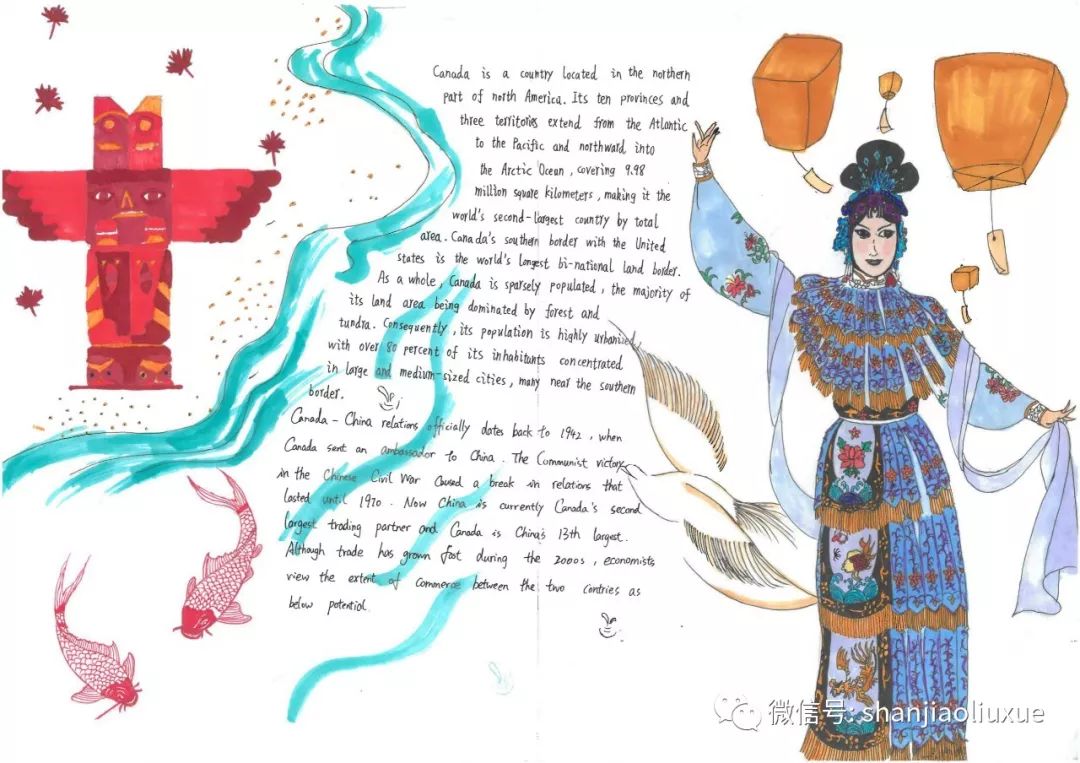 Canada is a country located in the northern
part of north America. Its ten provinces and
three territories extend from the Atlantic
to the Pacific and northward into
the Arctic Ocean, covering 9.98
million square kilometers, making it the
world's second-largest country by total
area. Canada's southern border with the United
states is the world's longest bi-national land border.
As a whole, Canada is sparsely populated, the majority of
its land area being dominated by forest and
tundra. Consequently, its population is highly urbanized,
with over 80 percent of its inhabitants concentrated
in large and medium-sized cities, many near the southern
border.
Canada - China relations officially dates back to 1942, when
Canada sent an ambassador to China. The Communist victory
in the Chinese Civil War caused a break in relations that
lasted until 1970. Now China is currently Canada's second
largest trading partner and Canada is China's 13th largest.
Although trade has grown fast during the 2000s, economists
view the extent of commerce between the two contries as
below potential.
微信号: shanjiaoliuxue